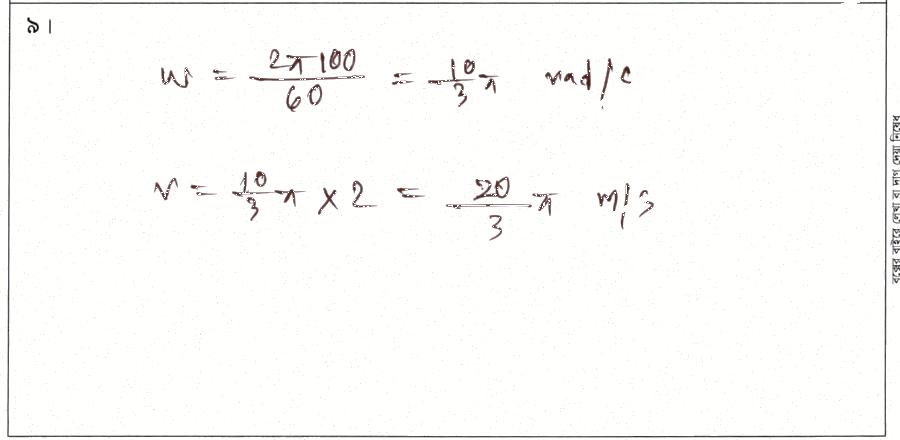 ৯।
w = 2π 100 / 60 = 10/3 π rad/c
v = 10/3 π × 2 = 20/3 π m/s
বক্সের বাইরে লেখা বা দাগ দেয়া নিষেধ